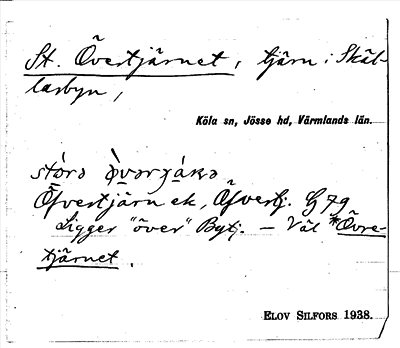 St. Övertjärnet, tjärn i Skäl-
larbyn,
Köla sn, Jösse hd, Värmlands län.
stórə
Öfvertjärn ek, Öfvertj. G 79
Ligger "över" Bytj. – Väl *Övre-
tjärnet.
ELOV SILFORS 1938.